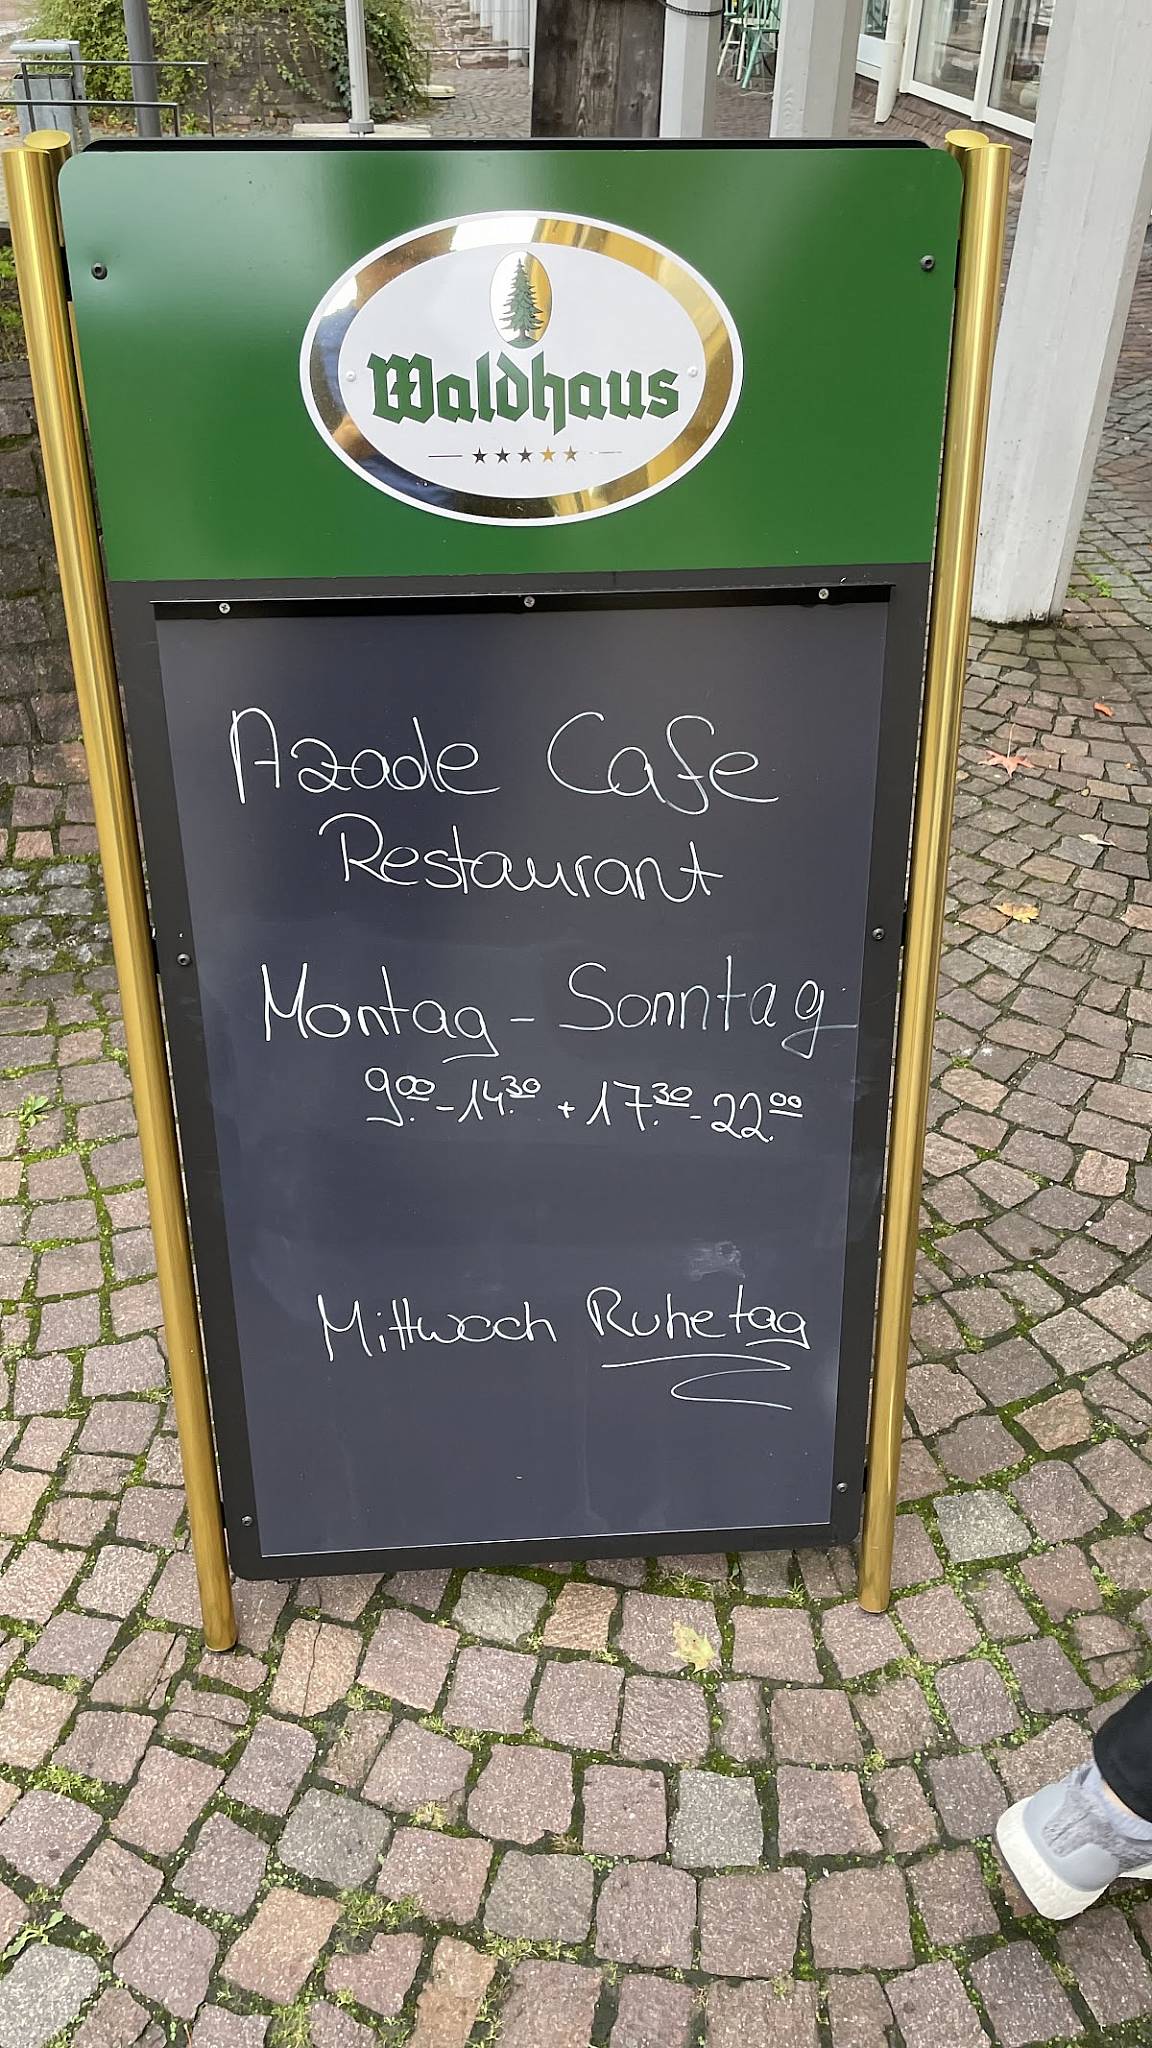 Waldhaus
Azade Cafe
Restaurant
Montag - Sonntag
9.00 - 14.30 + 17.30 - 22.00
Mittwoch Ruhetag